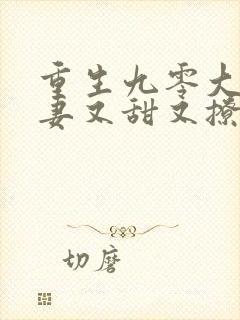 重生九零大
妻又甜又撩
切磨